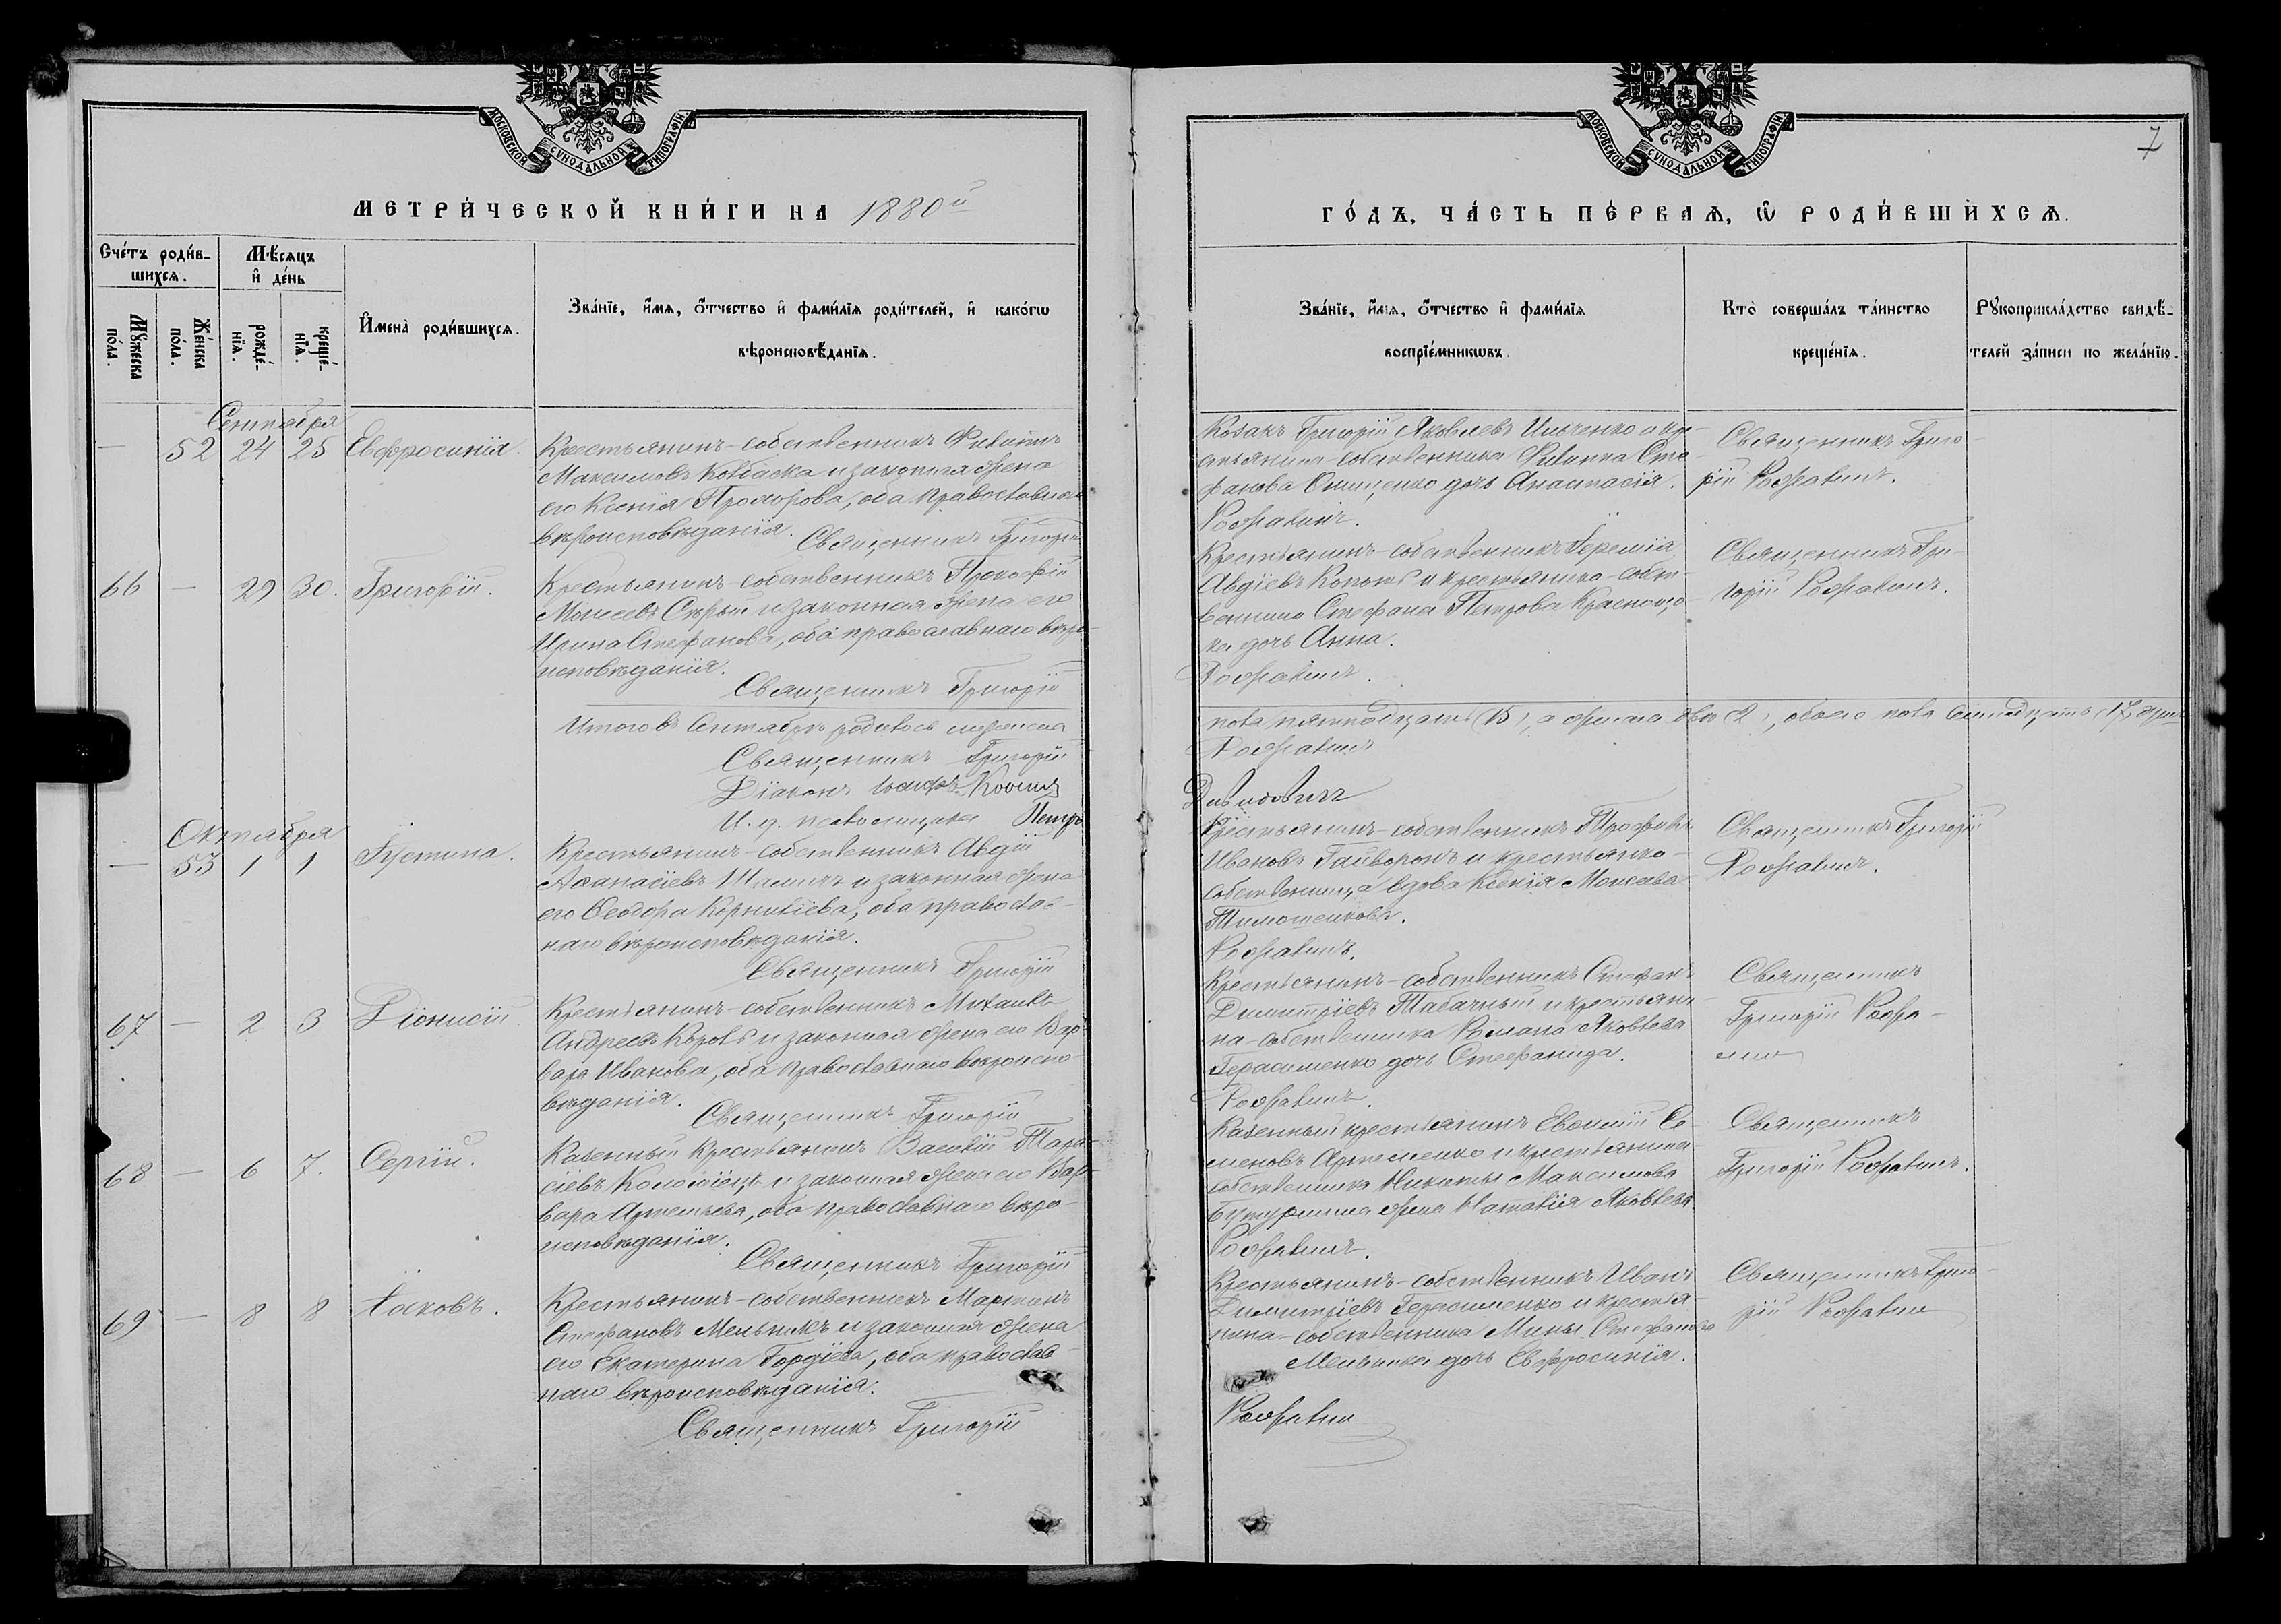 МОСКОВСКОЙ СѴНОДАЛЬНОЙ ТИПОГРАФІИ
МЕТРИ́ЧЕСКОЙ КНИ́ГИ НА 1880й
Сче́тъ роди́в-
шихсѧ.
Мѣ́сяцъ
и҆ де́нь
Мꙋ́жеска
по́ла.
Же́нска
по́ла.
рожде́-
нїѧ.
креще́-
нїѧ.
И҆мена̀ роди́вшихсѧ.
Зва́нїе, и҆́мѧ, ѻ҆́тчество и҆ фами́лїѧ роди́телей, и҆ како́гѡ
вѣроисповѣ́данїѧ.
Сентября
— 52 24 25 Евфросинія.
Крестьянинъ-собственникъ Филиппъ
Максимовъ Ковбаска и законная жена
его Ксенія Прохорова, оба православнаго
вѣроисповѣданія. Священникъ Григорій
66 — 29 30. Григорій.
Крестьянинъ-собственникъ Прокофій
Моисеевъ Сѣрый и законная жена его
Ирина Стефанова, оба православнаго вѣро-
исповѣданія.
Священникъ Григорій
Итого въ Сентябрѣ родилось мужеска
Священникъ Григорій
Діаконъ
И. д. псаломщика Петръ
Октября
— 53 1 1 Іустина.
Крестьянинъ-собственникъ Авдій
Аѳанасіевъ и законная жена
его Ѳеодора Корниліева, оба православ-
наго вѣроисповѣданія.
Священникъ Григорій
67 — 2 3 Діонисій
Крестьянинъ-собственникъ Михаилъ
Андреевъ и законная жена его Вар-
вара Иванова, оба православнаго вѣроиспо-
вѣданія.
Священникъ Григорій
68 — 6 7. Сергій.
Казенный крестьянинъ Василій Тара-
сіевъ Коломіецъ и законная жена его Вар-
вара Артемьева, оба православнаго вѣро-
исповѣданія.
Священникъ Григорій
69 — 8 8 Іаковъ.
Крестьянинъ-собственникъ Мартинъ
Стефановъ Мельникъ и законная жена
его Екатерина Гордіева, оба православ-
наго вѣроисповѣданія.
Священникъ Григорій
МОСКОВСКОЙ СѴНОДАЛЬНОЙ ТИПОГРАФІИ
7
ГО́ДЪ, ЧА́СТЬ ПЕ́РВАѦ, Ѡ҆ РОДИ́ВШИХСѦ.
Зва́нїе, и҆́мѧ, ѻ҆́тчество и҆ фами́лїѧ
воспрїе́мникѡвъ.
Кто̀ соверша́лъ та́инство
креще́нїѧ.
Рꙋкоприкла́дство свидѣ́-
телей за́писи по жела́нїю.
Козакъ Григорій Яковлевъ Ильченко и кре-
стьянина-собственника Филиппа Сте-
фанова Онищенко дочь Анастасія.
Священникъ Григо-
рій
Крестьянинъ-собственникъ Іеремія
Авдіевъ и крестьянина-собст-
венника Стефана Петрова
ка дочь Анна.
Священникъ Гри-
горій
пола пятнадцать (15), а женска два (2), обоего пола семнадцать (17) душъ
Давидовичъ
Крестьянинъ-собственникъ Трофимъ
Ивановъ Гайворонъ и крестьянка-
собственница вдова Ксенія Моисеева
Тимошенкова.
Священникъ Григорій
Крестьянинъ-собственникъ Стефанъ
Димитріевъ Табачный и крестьяни-
на-собственника Романа Яковлева
Герасименко дочь Стефанида.
Священникъ
Григорій
Казенный крестьянинъ Евѳимій Се-
меновъ Артеменко и крестьянина-
собственника Никиты Максимова
жена Наталія Яковлева.
Священникъ
Григорій
Крестьянинъ-собственникъ Иванъ
Димитріевъ Герасименко и крестья-
нина-собственника Мины Стефанова
Мельника дочь Евфросинія.
Священникъ Григо-
рій